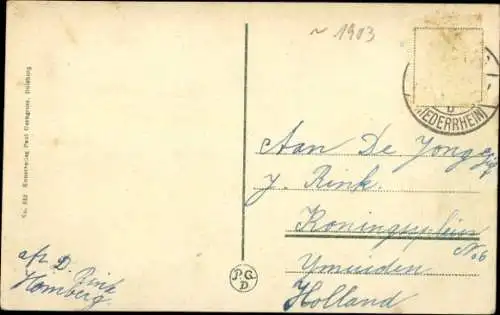 ~ 1903
(NIEDERRHEIN)
b
Aan De Jonge
J. Rink.
Koningsplein
No 6
Ymuiden
Holland
afz. D. Rink
Homberg.
P.G.
D
No. 832 Kunstverlag Paul Duisburg